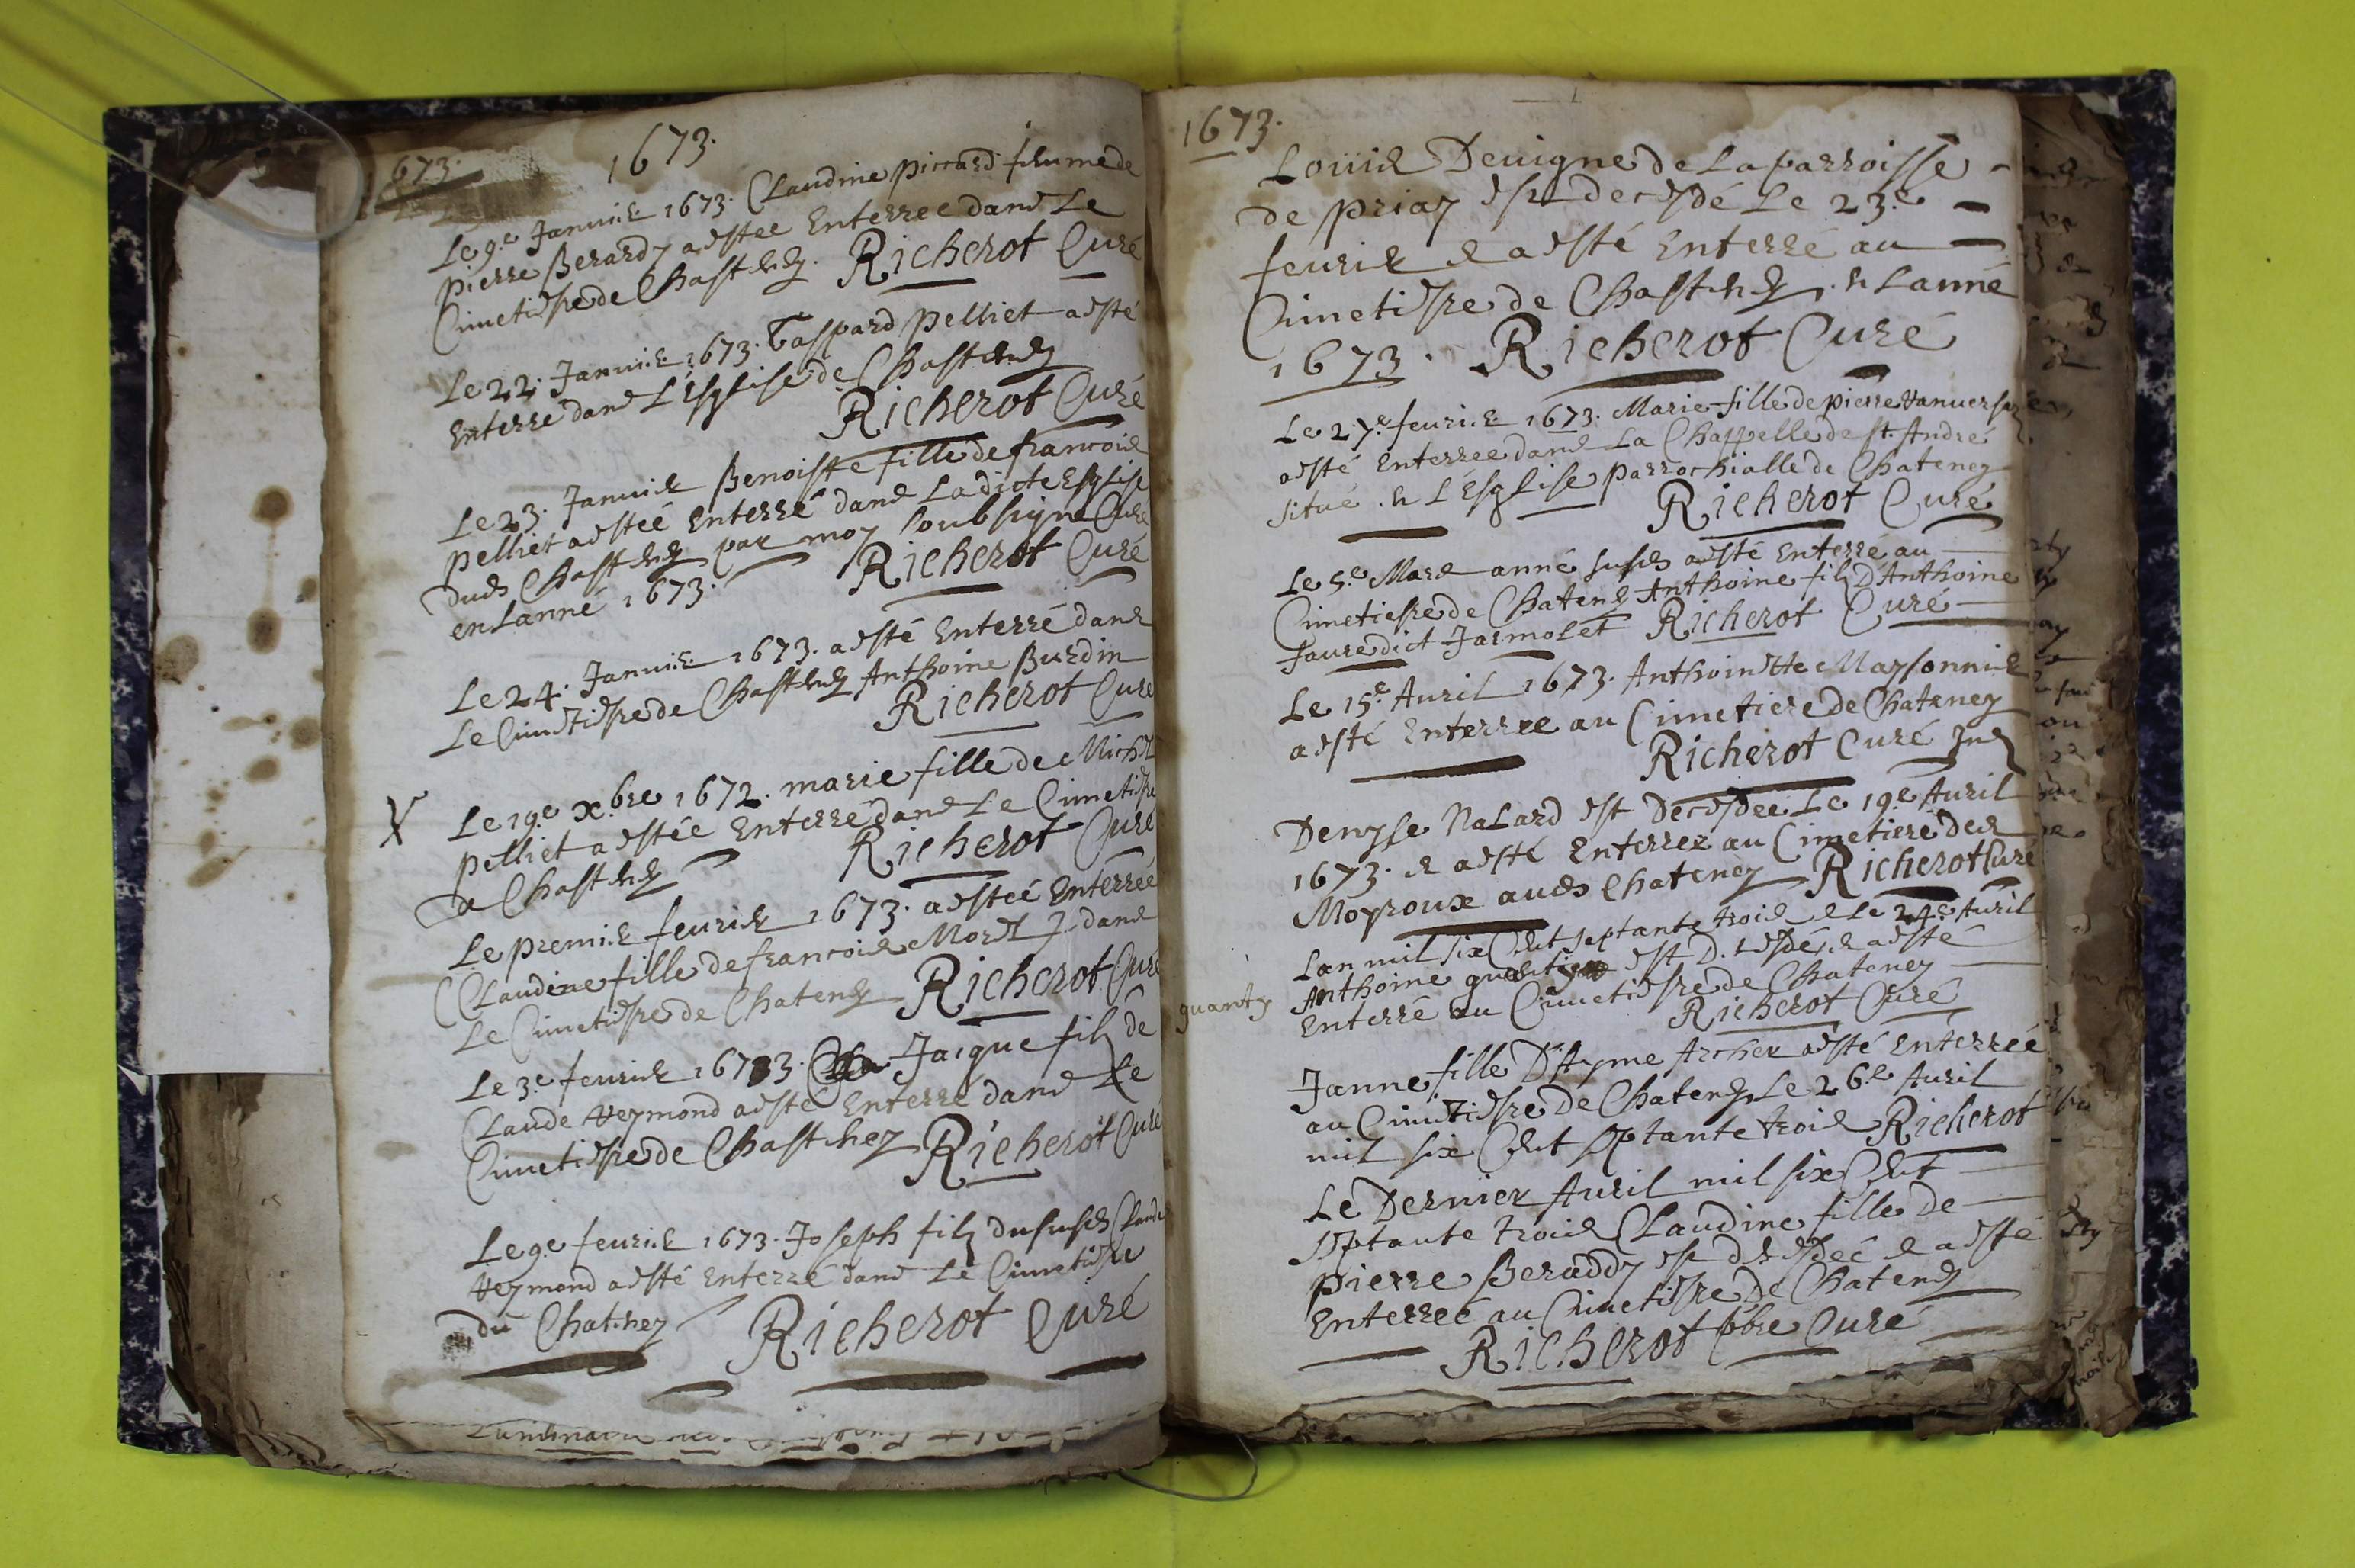 673.
1673.
Le 9.e Januier 1673. Claudine piccard femme de
pierre Berardy a estee Enterree dans Le
Cimetiere de Chastenay. Richerot Curé
Le 22. Januier 1673. Gaspard Pelliet a esté
Enterré dans L'Esglise de Chastenay
Richerot Curé
Le 23. Januier Benoiste fille de francois
pelliet a esteé Enterré dans Ladicte Esglise
dud Chastenay par moy soubsigne Curé
en Lanné 1673. Richerot Curé
Le 24. Januier 1673. a esté Enterré dans
Le Cimetiere de Chastenay Anthoine Burdin
Richerot Curé
X Le 19.e x.bre 1672. marie fille de Michel
pelliet a estée Enterré dans Le Cimetiere
a Chastenay Richerot Curé
Le premier feurier 1673. a esteé Enterrée
Claudine fille de francois Morel dans
Le Cimetiere de Chatenay Richerot Curé
Le 3.e feurier 1673. Jacque filz de
Claude Veymond a esté Enterré dans Le
Cimetiere de Chastney Richerot Curé
Le 9.e feurier 1673. Joseph filz du susd Claude
Veymond a esté Enterré dans Le Cimetiere
du Chatney Richerot Curé
1673.
Loüis Deuigne de La parroisse
de priay est decedé Le 23.e
feurier & a esté Enterré au
Cimetiere de Chastenay en Lanné
1673. Richerot Curé
Le 27.e feurier 1673. Marie fille de pierre
a esté Enterree dans La Chappelle de st. André
situé en L'Esglise parrochialle de Chateney
Richerot Curé
Le 5.e Mars anné susd a esté Enterré au
Cimetiere de Chatenay Anthoine filz D'Anthoine
faure dict Jarmolet Richerot Curé
Le 15.e Auril 1673. Anthoinette Maysonnier
a esté Enterree au Cimetiere de Chateney
Richerot Curé
Denyse Nalard est Decedeé Le 19.e Auril
1673. & a esté Enterrer au Cimetiere des
Moyroux aud Chateney Richerot Curé
Lan mil six Cent septante trois & Le 24.e Auril
quanty Anthoine est Decedé & a esté
Enterré au Cimetiere de Chateney
Richerot Curé
Janne fille D'Ayme Archer a esté Enterreé
au Cimetiere de Chatenay Le 26.e Auril
mil six Cent septante trois Richerot
Le Dernier Auril mil six Cent
septante trois Claudine fille de
pierre Beraddy est decedeé & a esté
Enterreé au Cimetiere De Chatenay
Richerot pbre Curé